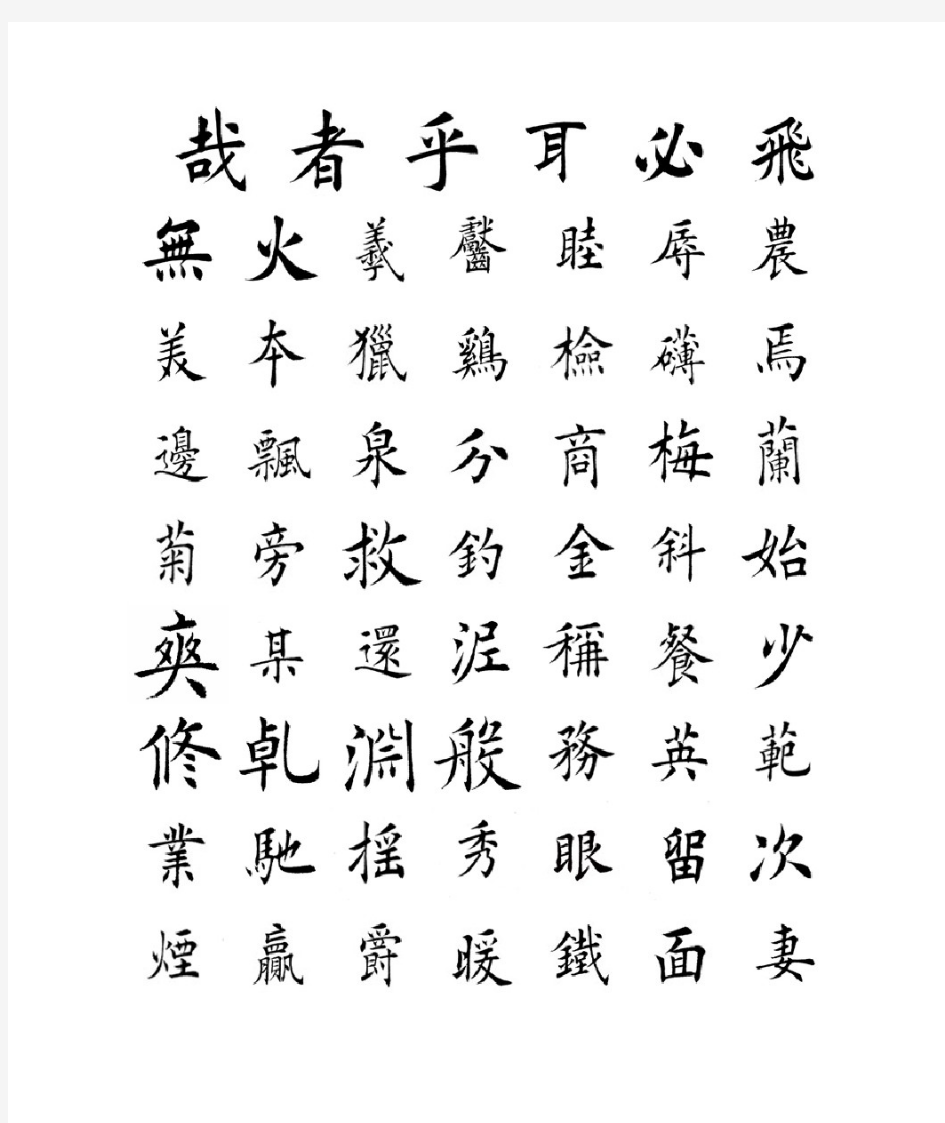 哉者乎耳必飛
無火羲齾睦辱農
美本獵鷄檢礴焉
邊飄泉分商梅蘭
菊旁救釣金斜始
爽某還泥稱餐少
修乹淵般務英範
業馳摇秀眼留次
煙贏爵暖鐵面妻